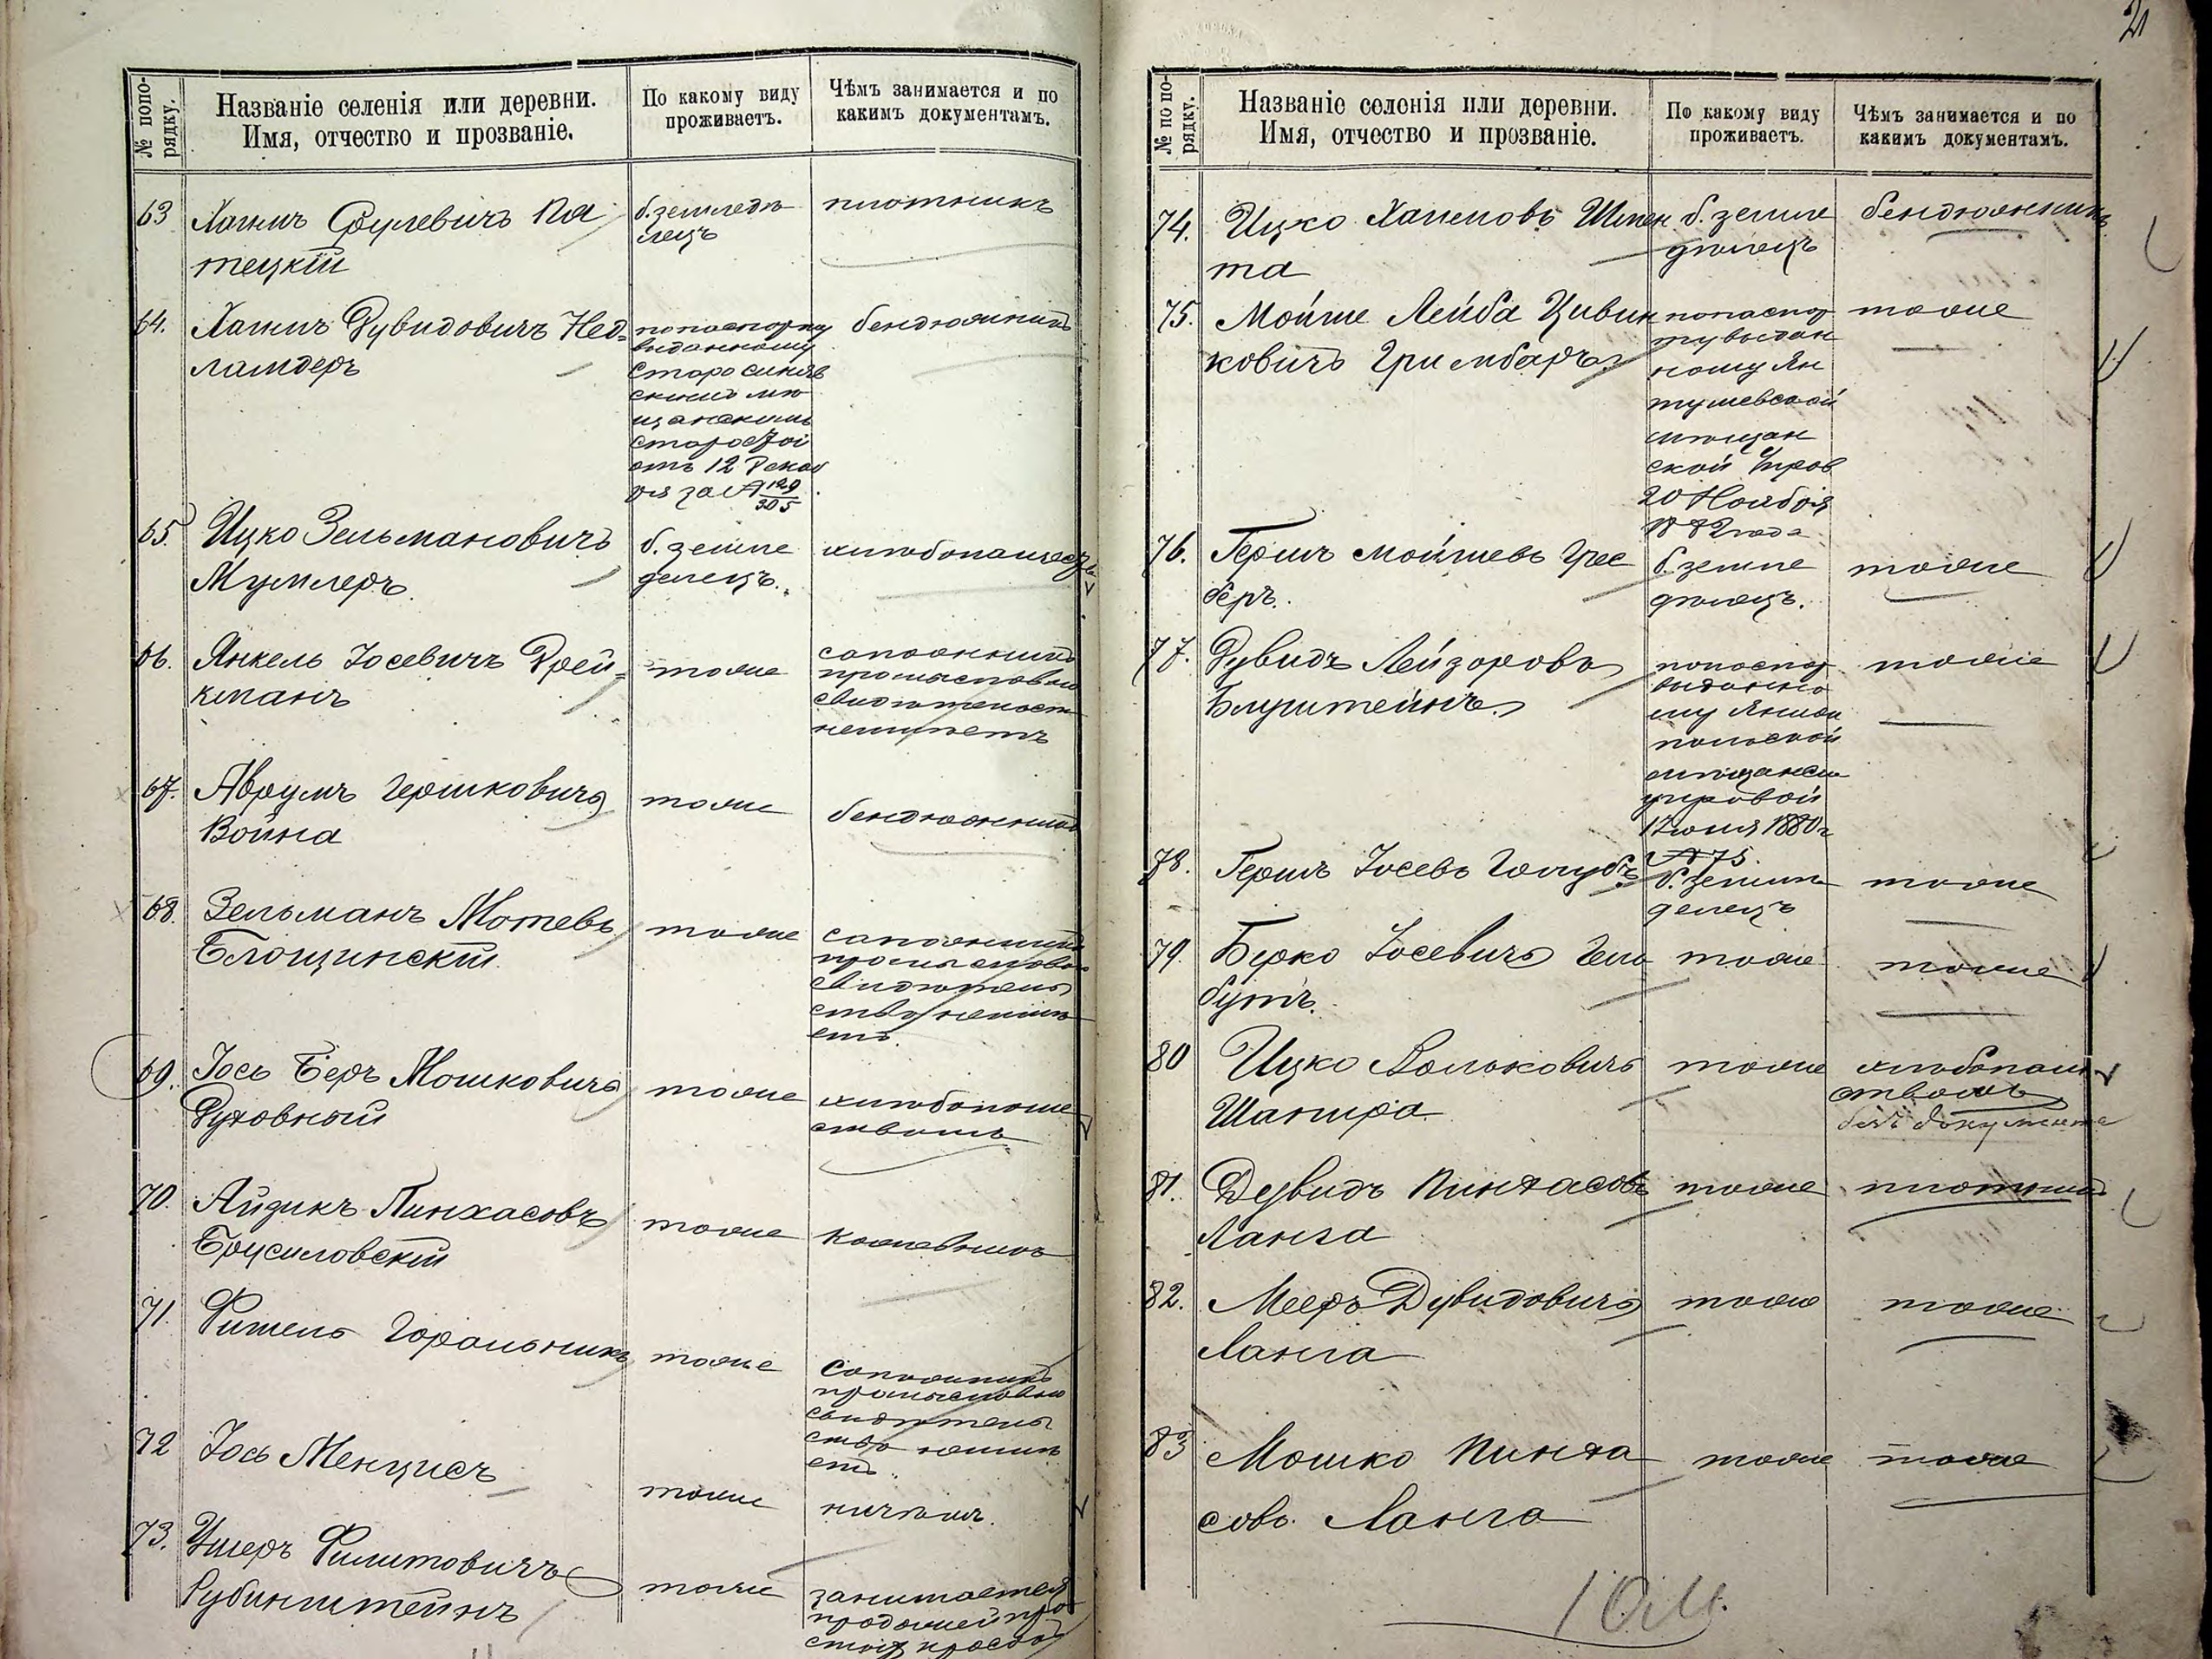 № по по-
рядку.
Названіе селенія или деревни.
Имя, отчество и прозваніе.
По какому виду
проживаетъ.
Чѣмъ занимается и по
какимъ документамъ.
63
Хаимъ Срулевичъ Пя
тецкій
б. земледѣ
лецъ
плотникъ
64.
Хаимъ Дувидовичъ Нед=
ламдеръ
по паспорту
выданному
Старосиняв
скимъ мѣ
щанскимъ
старостой
отъ 12 Декаб
ря за № 129/305
бендюжникъ
65.
Ицко Зельмановичъ
Мумлеръ
б. земле
делецъ.
хлѣбопашест
66.
Янкель Іосевичъ Дрей=
кманъ
тоже
сапожникъ
промысловаго
свидѣтельст
неимѣетъ
67.
Аврумъ Гершковичъ
Война
тоже
бендюжникъ
68.
Зельманъ Мотевъ
Блощинскій
тоже
сапожникъ
промысловаго
свидѣтель
ства неимѣ
етъ.
69.
Іось Беръ Мошковичъ
Духовный
тоже
хлѣбопаше
ствомъ
70.
Айзикъ Пинхасовъ
Брусиловскій
тоже
кожевникъ
71.
Фишель Горальникъ
тоже
Сапожникъ
промысловаго
свидѣтель
ства неимѣ
етъ.
72
Іось Менцисъ
тоже
ничѣмъ.
73.
Ушеръ Филитовичъ
Рубинштейнъ
тоже
занимается
продажей про
21
№ по по-
рядку.
Названіе селенія или деревни.
Имя, отчество и прозваніе.
По какому виду
проживаетъ.
Чѣмъ занимается и по
какимъ документамъ.
74.
Ицко Хаимовъ Шпен
та
б. земле
дѣлецъ
бендюжникъ
75.
Мойше Лейба Цивин
ковичъ Гримбаръ
по паспор
ту выдан
ному Ян
тушевской
мѣщан
ской Управ
20 Ноября
1882 года
тоже
76.
Гершъ Мойшевъ Грее
беръ.
б. земле
дѣлецъ.
тоже
77.
Дувидъ Лейзоровъ
Блуштейнъ
по паспор
выданно
му Ямпо
польской
мѣщанск
управой
17 юня 1880 г
№ 75.
тоже
78.
Гершъ Іосевъ Голубъ
б. земле
делецъ
тоже
79.
Берко Іосевичъ Гело
бутъ.
тоже
тоже
80
Ицко Вольковичъ
Шапира
тоже
хлѣбопаш
ствомъ
безъ документа
81.
Дувидъ Пинхасовъ
Ланга
тоже
плотникъ
82.
Мееръ Дувидовичъ
Ланга
тоже
тоже
83
Мошко Пинха
совъ Ланга
тоже
тоже